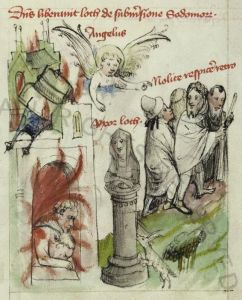 Dn̄s liberauit loth de subūsione Sodomorꝝ
Angelus
Nolite respicere retro
Vxor loth